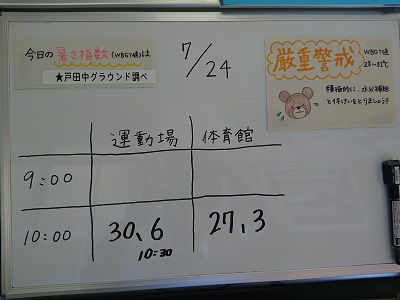 今日の暑さ指数(WBGT値)は
★戸田中グラウンド調べ
7/24
厳重警戒
WBGT値
28~31℃
積極的に、水分補給
と休けいをとりましょう!!
運動場 体育館
9:00
10:00 30、6 27、3
10:30